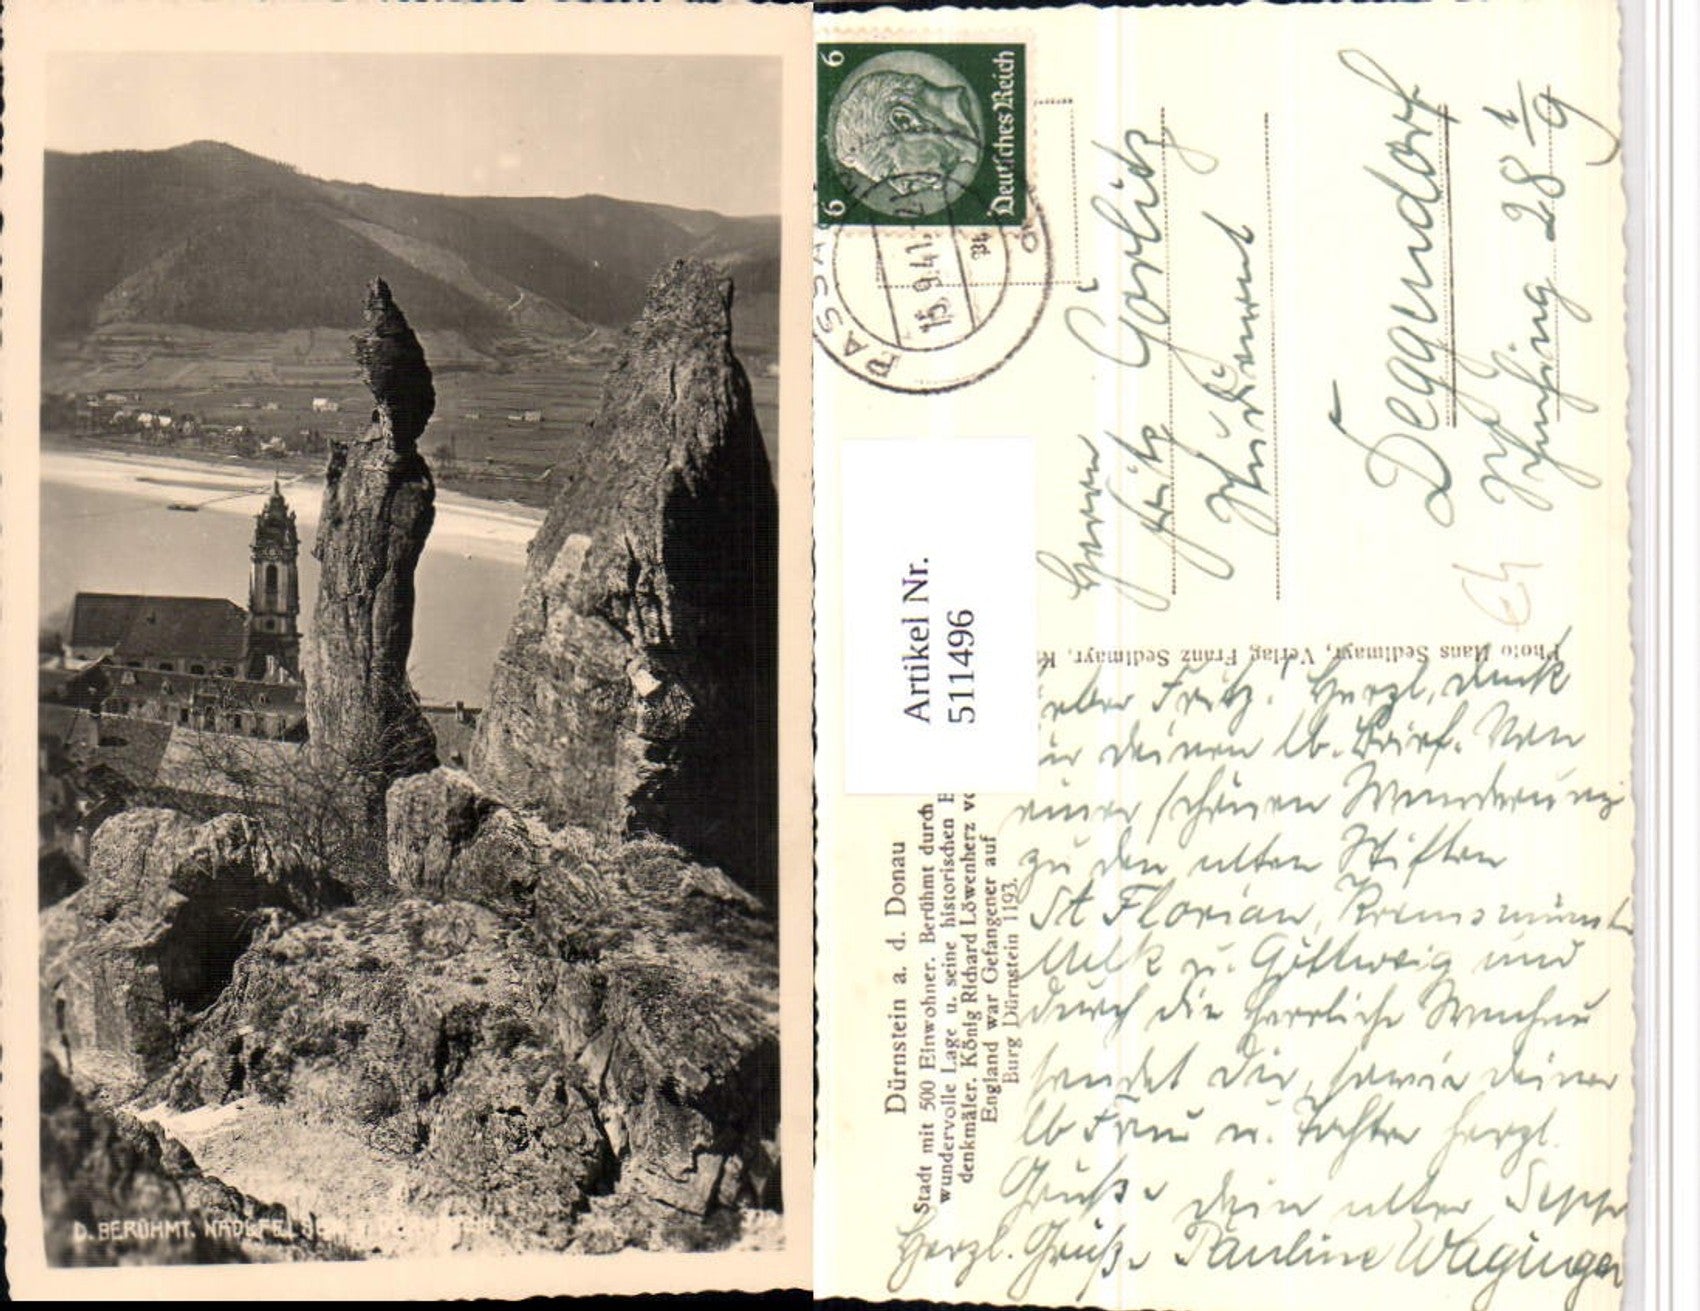 D. BERÜHMT. NADELFELSEN B. DÜRNSTEIN
Deutsches Reich
6
6
PASSAU
15.9.41.
Herrn
Fritz Görlitz
Deggendorf
28 1/9
Artikel Nr.
511496
Photo Hans Sedlmayr, Verlag Franz Sedlmayr, K
Dürnstein a. d. Donau
Stadt mit 500 Einwohner. Berühmt durch
wundervolle Lage u. seine historischen
denkmäler. König Richard Löwenherz vo
England war Gefangener auf
Burg Dürnstein 1193.
Lieber Fritz! Herzl. Dank
für deinen lb. Brief. Von
einer schönen Wanderung
zu den alten Stiften
St Florian, Kremsmünst
Melk u. Göttweig und
durch die herrliche Wachau
sendet dir, sowie deiner
lb Frau u. Tochter herzl.
Grüße dein alter Sepp
Herzl. Grüße Pauline Waginger